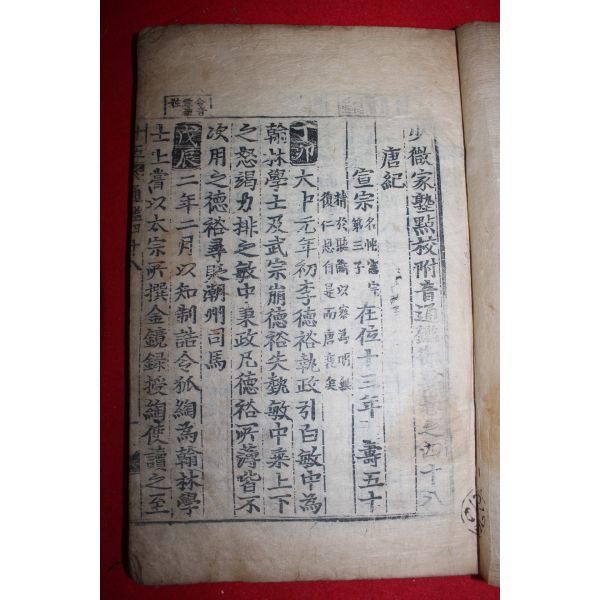 少微家塾點校附音通鑑卷之四十八
唐紀
宣宗 名忱憲宗第三子 在位十三年 壽五十
精於聽斷以察為明無
復仁恩自是而唐衰矣
丁卯 大中元年初李德裕執政引白敏中為
翰林學士及武宗崩德裕失勢敏中乘上下
之怒竭力排之敏中秉政凡德裕所薄皆不
次用之德裕尋貶潮州司馬
戊辰 二年二月以知制誥令狐綯為翰林學
士上嘗以太宗所撰金鏡錄授綯使讀之至